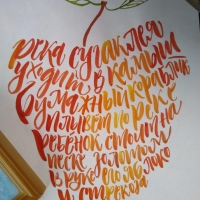 река суглаклея
уходит в камыш
бумажный кораблик
плывет по реке
ребенок стоит на
песке золотом
в руке его яблоко
и стрекоза